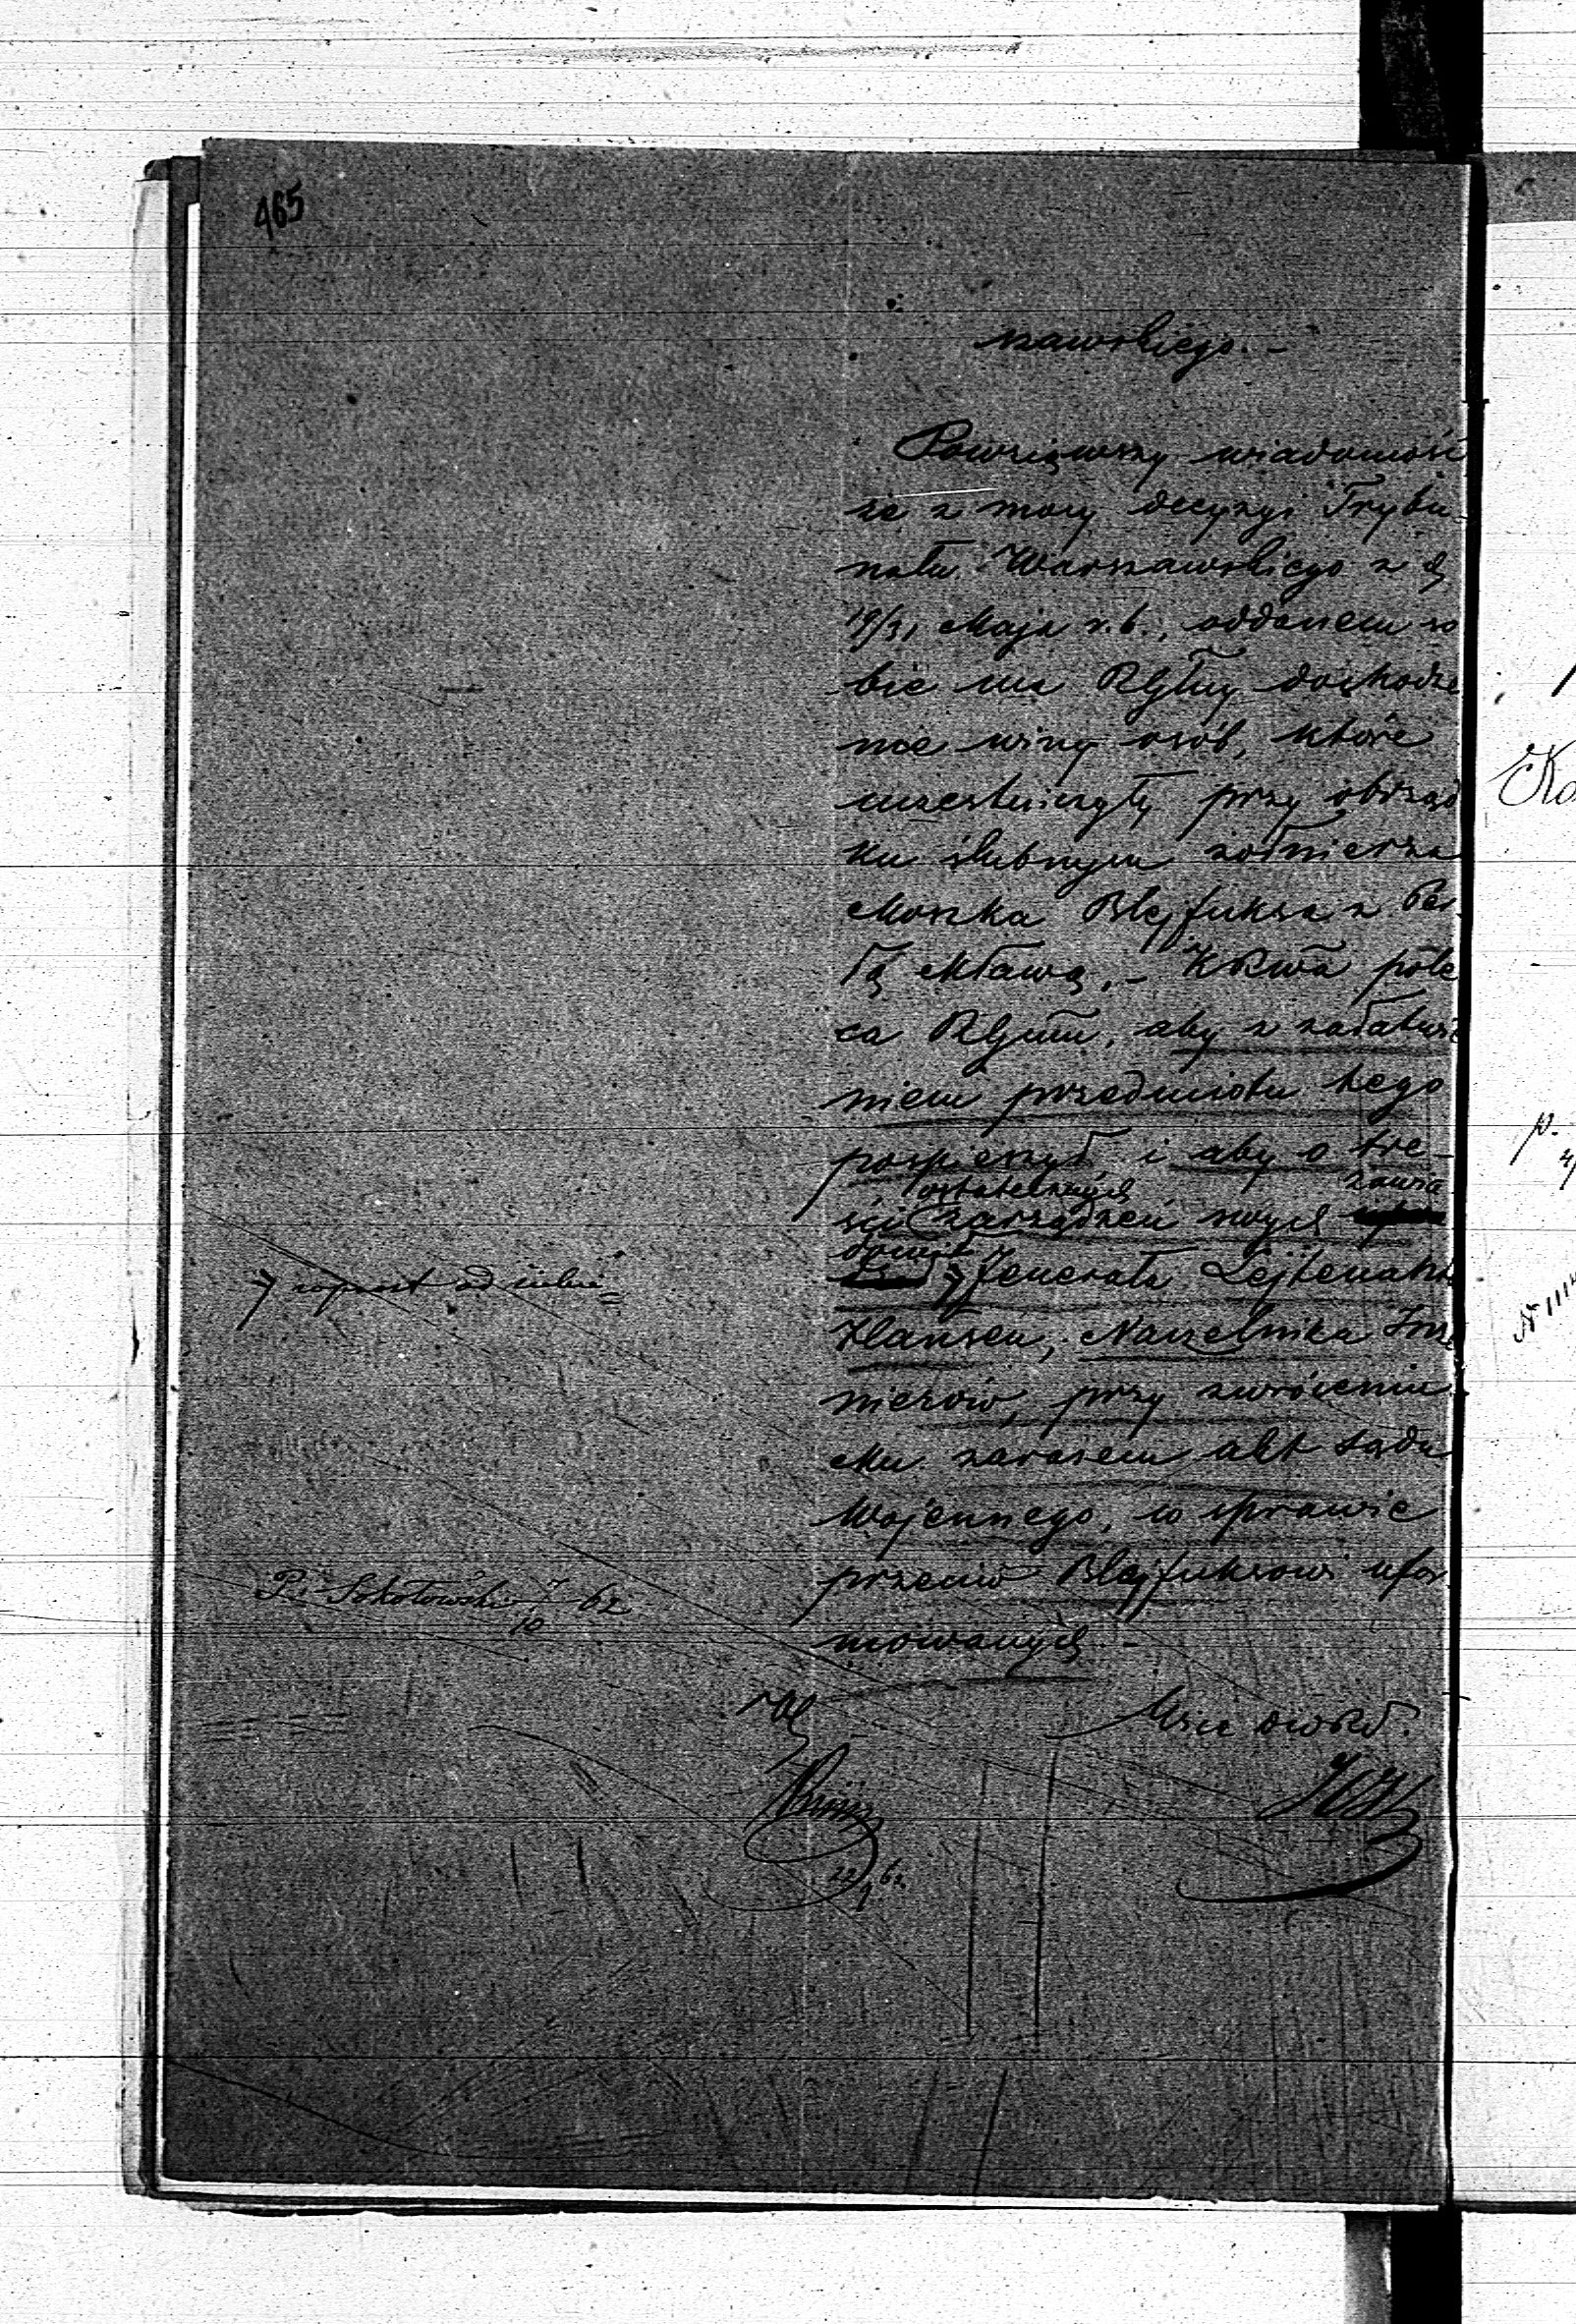 465
szawskiego. –
Powziąwszy wiadomość
że z mocy decyzyi Trybu-
nału Warszawskiego z d
19/31 Maja r. b., oddanem zo
bie ma RGłny dochodze
nie winy osób, które
uczestniczyły przy obrząd
ku ślubnym żołnierza
Moszka Blejfuksa z Per-
lą Mławą. – KRwa pole
ca RGmu, aby z załatwie
niem przedmiotu tego
pospieszył, i aby o tre-
ostatecznych zawia
ści zarządzeń swych
domił
Jenerała Lejtenanta
Hansen, Naczelnika Inży
nierów, przy zwróceniu
Mu zarazem akt Sądu
Wojennego, w sprawie
przeciw Blejfuksowi ufor
mowanych. –
raport oddzielnie
P. Sokołowski 7/10 62
22/9 62